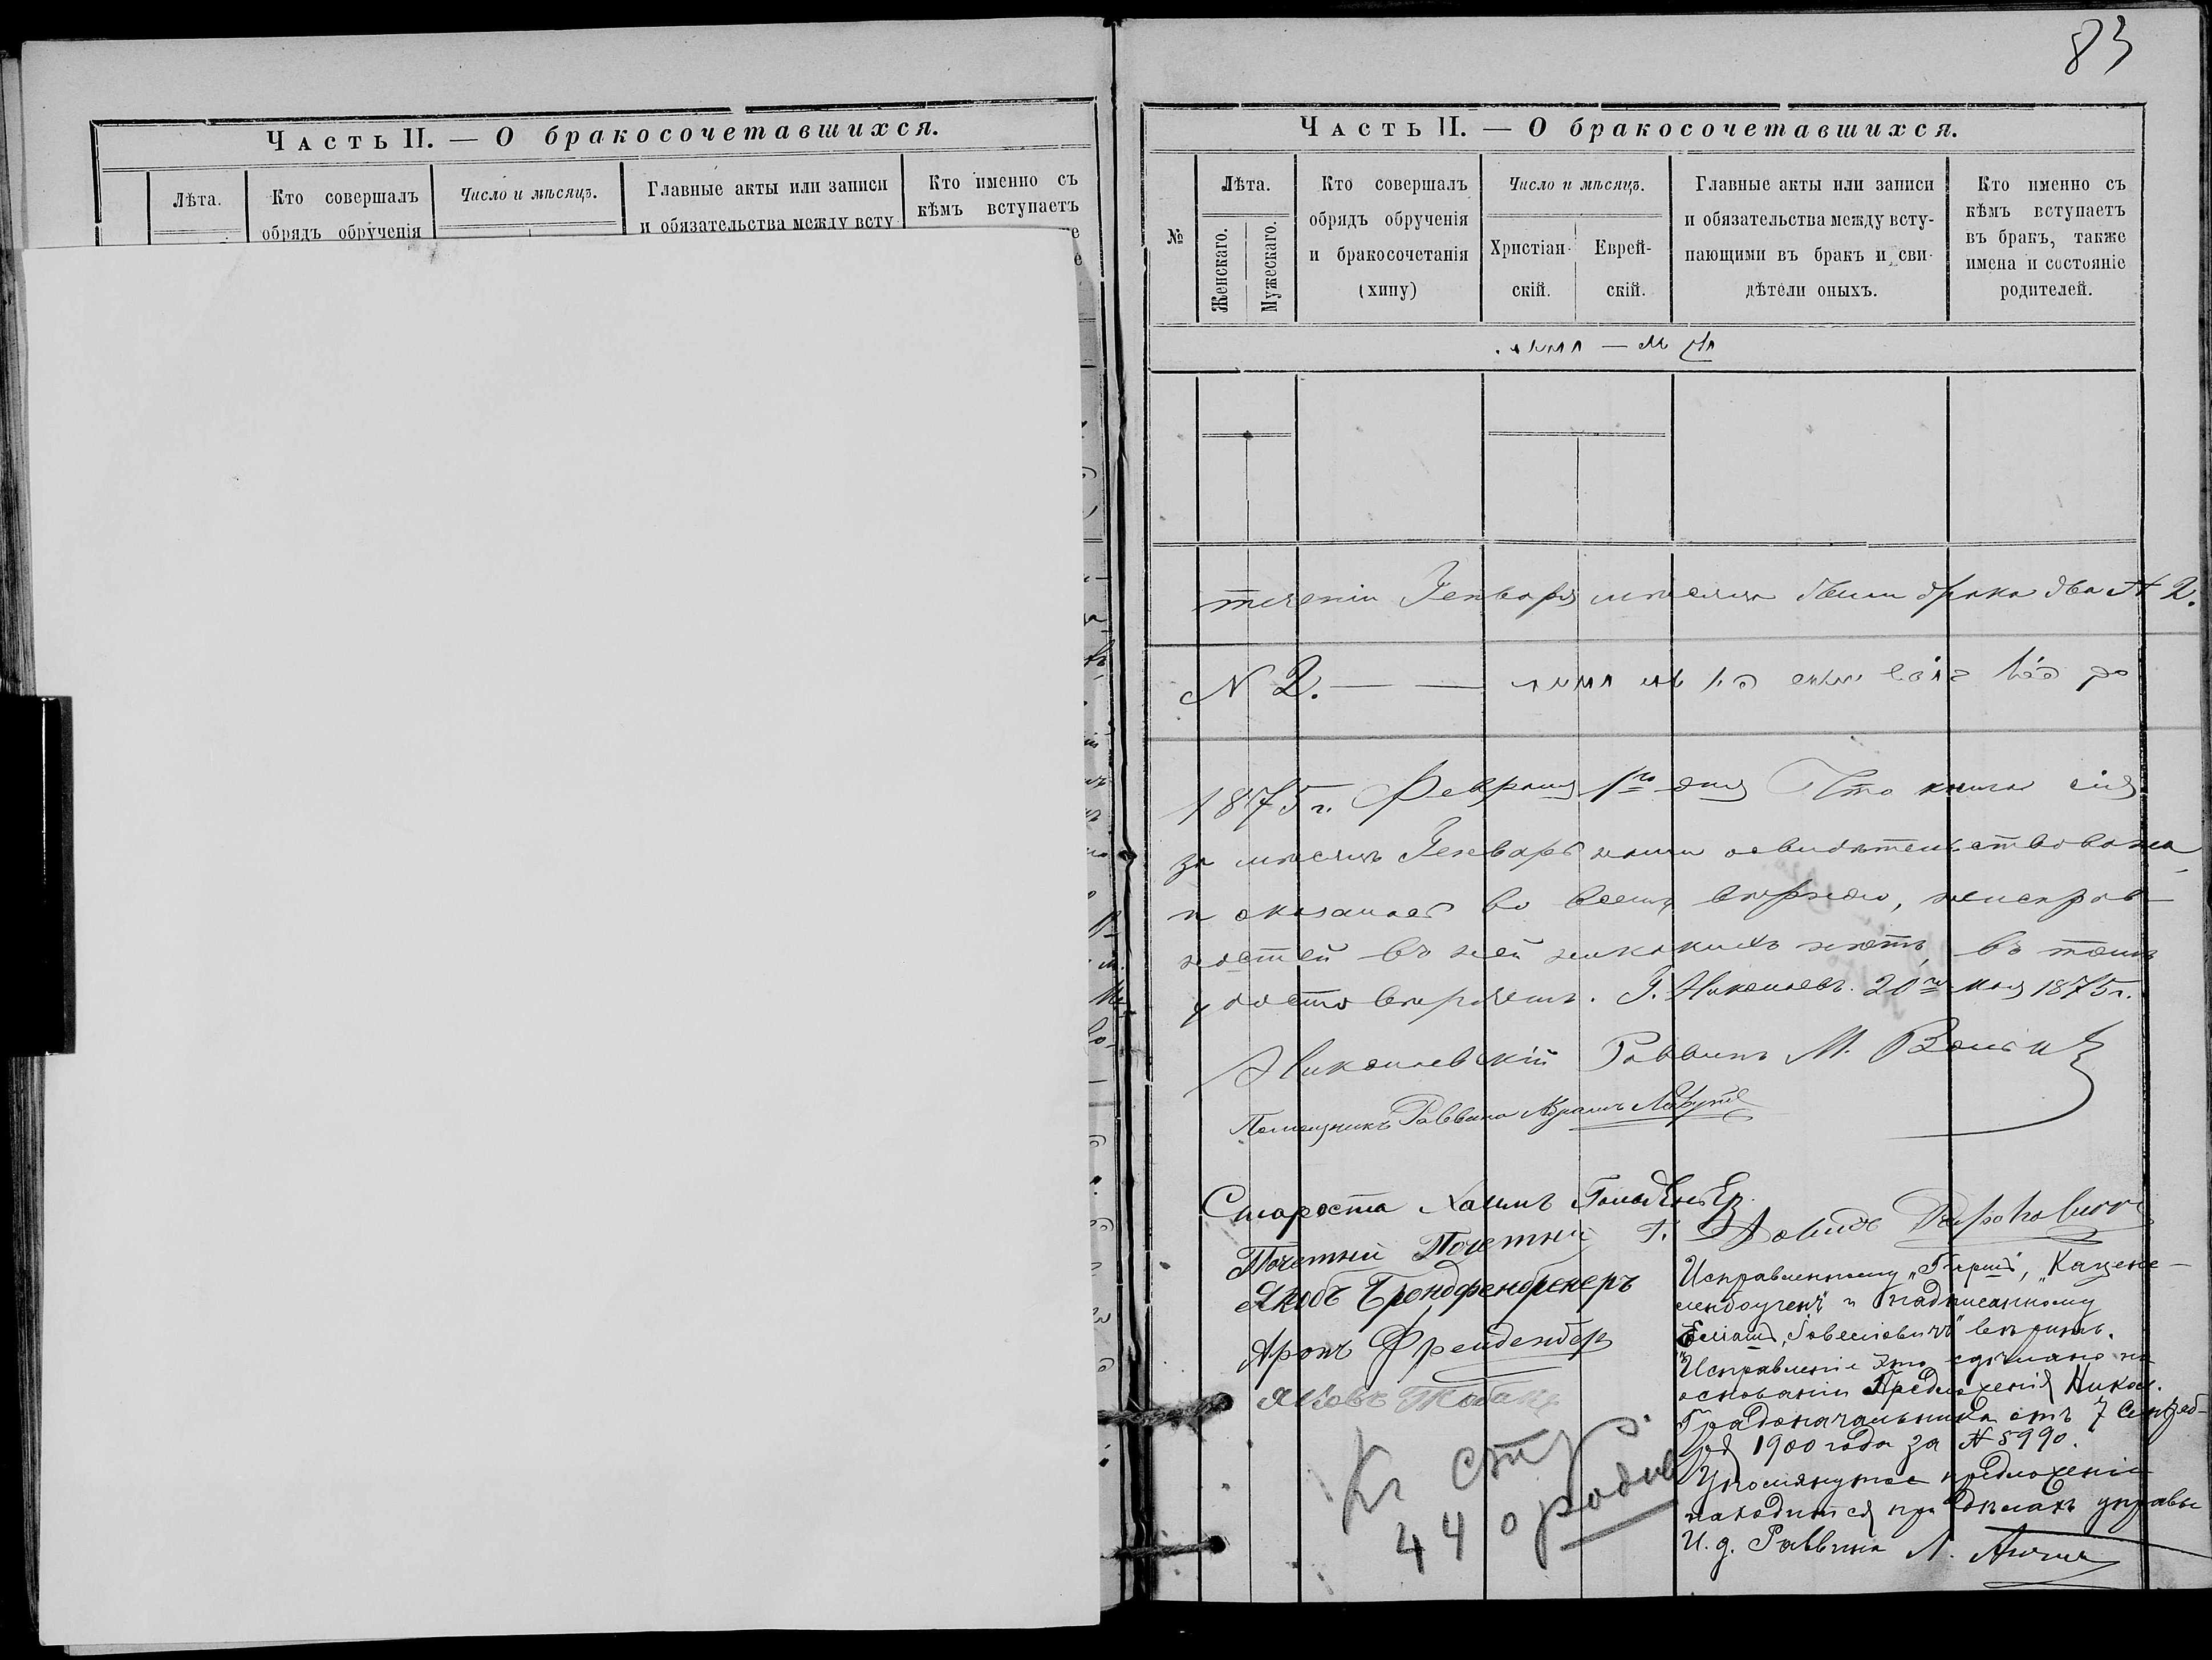 83
Часть II. — О бракосочетавшихся.
Лѣта.
Кто совершалъ
обрядъ обрученія
Число и мѣсяцъ.
Главные акты или записи
и обязательства между всту
Кто именно съ
кѣмъ вступаетъ
Часть II. — О бракосочетавшихся.
№
Лѣта.
Женскаго.
Мужескаго.
Кто совершалъ
обрядъ обрученія
и бракосочетанія
(хипу)
Число и мѣсяцъ.
Христіан-
скій.
Еврей-
скій.
Главные акты или записи
и обязательства между всту-
пающими въ бракъ и сви-
дѣтели оныхъ.
Кто именно съ
кѣмъ вступаетъ
въ бракъ, также
имена и состояніе
родителей.
теченіи Генваря мѣсяца были брака два № 2.
N 2. — —
1875 г. Февраля 1го дня Что книга сія
за мѣсяцъ Генварь нами освидѣтельствована
и оказалась во всемъ вѣрною, неисправ-
ностей въ ней никакихъ нѣтъ, въ томъ
удостовѣряемъ. Г. Николаевъ. 20го мая 1875 г.
Николаевскій Раввинъ М.
Помощникъ Раввина Абрамъ
Староста Хаимъ
Почетный Почетный Г. Давидъ
Якобъ Бронфенбренеръ
Аронъ Фрейденбер
Яковъ
Исправленному „Гирша", „Кацене-
ленбогенъ" и надписанному
вѣрить.
Исправленіе это сдѣлано на
основаніи Предложенія Никол.
Градоначальника отъ 7 Сентяб-
ря 1900 года за № 5990.
Упомянутое предложеніе
находится при дѣлахъ управы
И. д. Раввина Л.
Къ ст
44 о родив